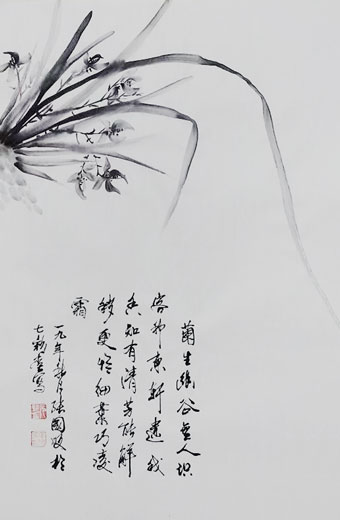 蘭生幽谷無人識
客種東軒遺我
香知有清芳能解
穢更憐細葉巧凌
霜
一九年 月張國政於
七